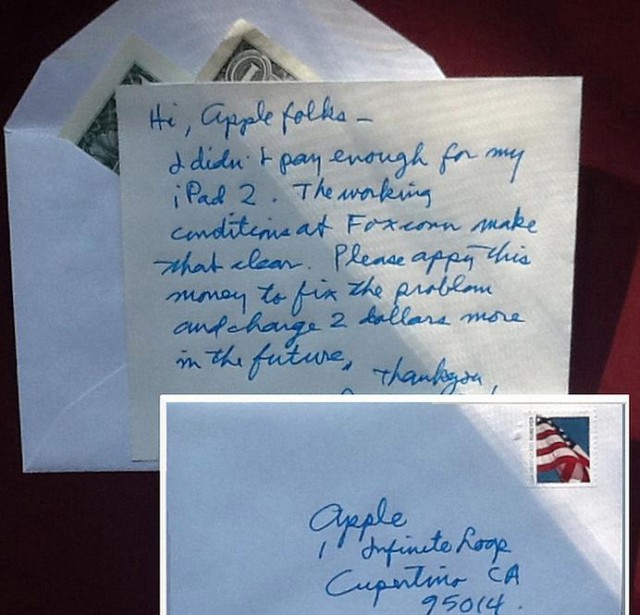 Hi, Apple folks –
I didn't pay enough for my
iPad 2. The working
conditions at Foxconn make
that clear. Please appy this
money to fix the problem
and charge 2 dollars more
in the future.
Thankyou,
Apple
1 Infinite Loop
Cupertino CA
95014.